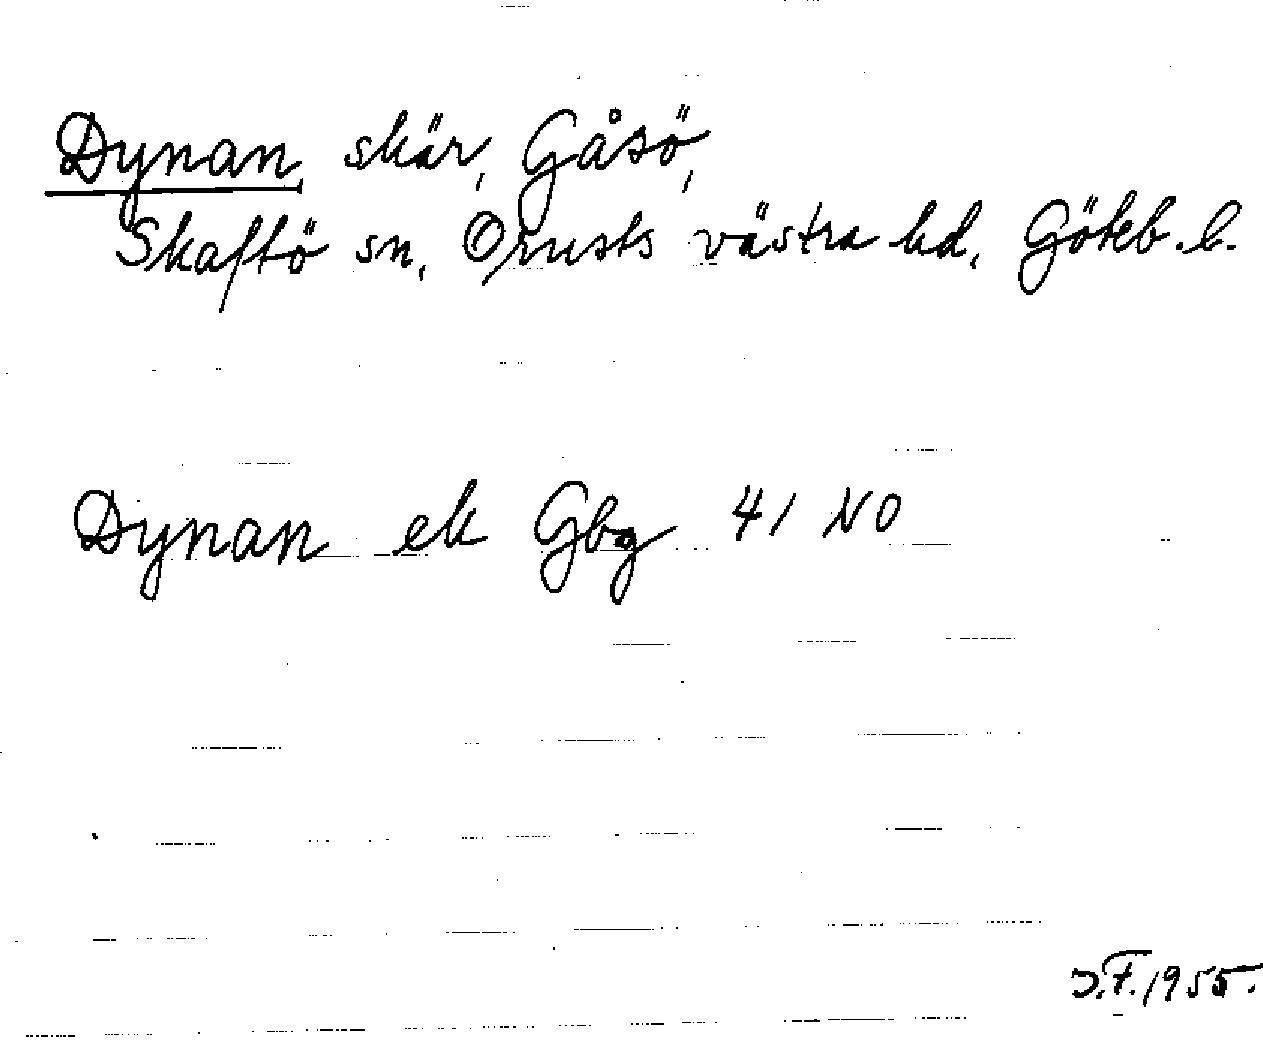 Dynan, skär, Gåsö,
Skaftö sn, Orusts västra hd, Göteb. l.
Dynan ek Gbg 41 NO
J.F. 1955.